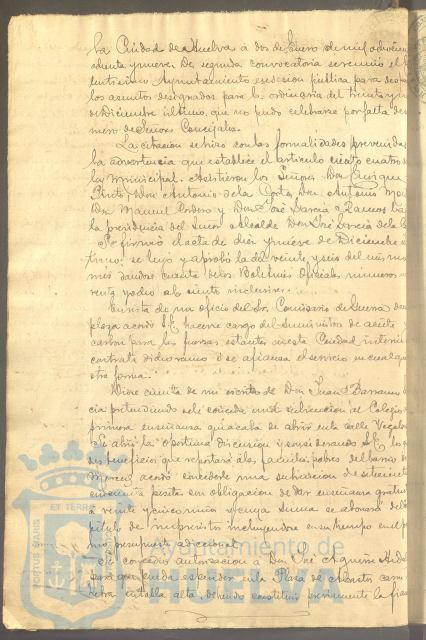 la Ciudad de Huelva á dos de Enero de mil ochocien
senta y nueve. De segunda convocatoria se reunió el
lentisimo Ayuntamiento en sesion publica para des
los asuntos designados para la ordinaria del treinta y un
de Diciembre ultimo, que no pudo celebrarse por falta de
mero de Señores Concejales.
La citacion se hizo con las formalidades prevenidas
la advertencia que establece el articulo ciento cuatro de
ley Municipal. Asistieron los Señores Don Enrique
Pinto, Don Antonio de la Corte, Don Antonio
Don Manuel Cordero y Don José Garcia Ramos
la presidencia del Señor Alcalde Don José Garcia de la
Se firmó el acta de diez y nueve de Diciembre
timo: se leyó y aprobó la de veinte y seis del mismo
mes dandose cuenta de los Boletines Oficiales, numeros
venta y ocho al ciento inclusives.
En vista de un oficio del Sr. Comisario de Guerra de
plaza acordó S.E. hacerse cargo del suministro de aceite y
carbon para las fuerzas estantes en esta Ciudad interin
contrata dicho ramo ó se afianza el servicio en cualqui
otra forma.
Diose cuenta de un escrito de Don Juan
cia pretendiendo se le conceda una subvencion al Colegio
primera enseñanza que acaba de abrir en la calle
Se abrió la oportuna discusion y considerando S.E. los
des beneficios que reportará á las familias pobres del barrio
acordó concederle una subvencion de setecientas
cincuenta pesetas con obligacion de dar enseñanza gratuita
á veinte y cinco niños y cuya suma se abonará del
pitulo de imprevistos incluyendose en su tiempo en el
presupuesto adicional.
Se concedió autorizacion á Don José
para que pueda expender en la Plaza de abastos carne
en tabla alta, debiendo constituir previamente la fian
ET TERRAE
PORTUS MARIS
Ayuntamiento de
HUELVA